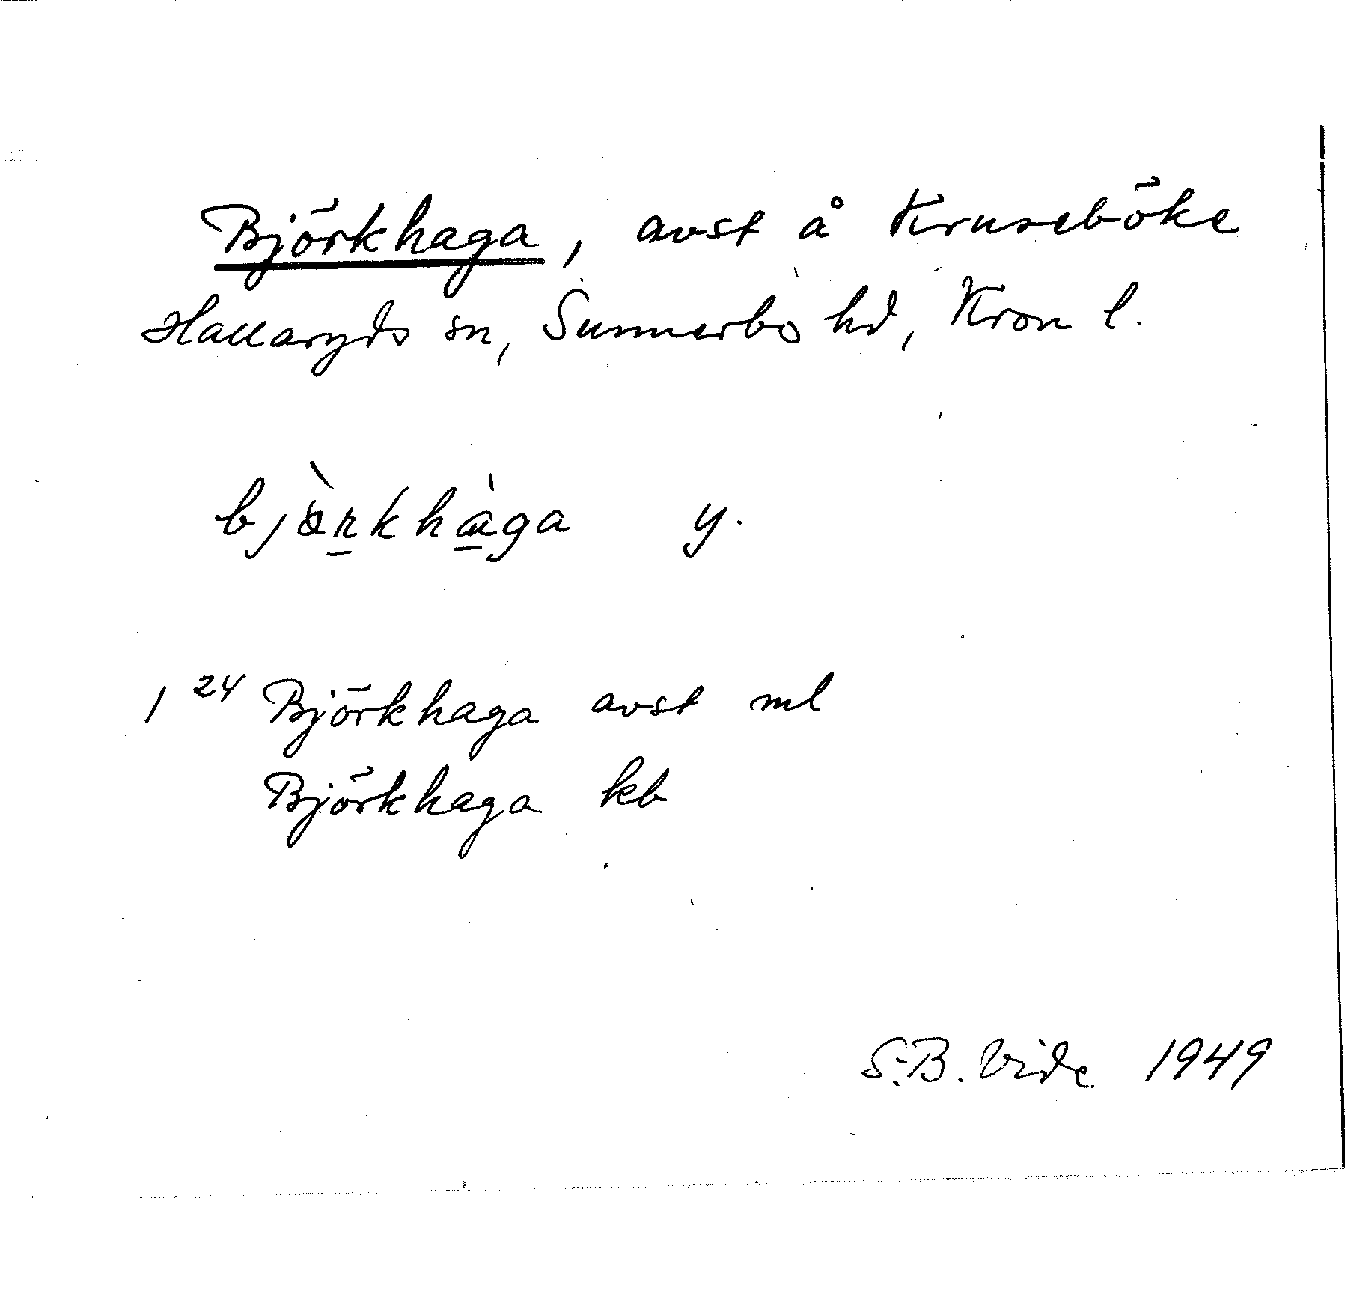 Björkhaga, avst å Kruseböke
Hallaryds sn, Sunnerbo hd, Kron l.
bjàrkhàga y.
1 24 Björkhaga avst ml
Björkhaga kb
S.B. Vide 1949